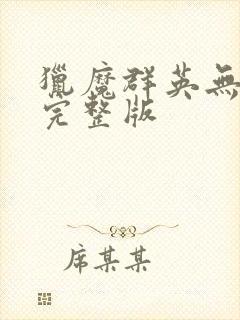 獵魔群英無
完整版
席某某